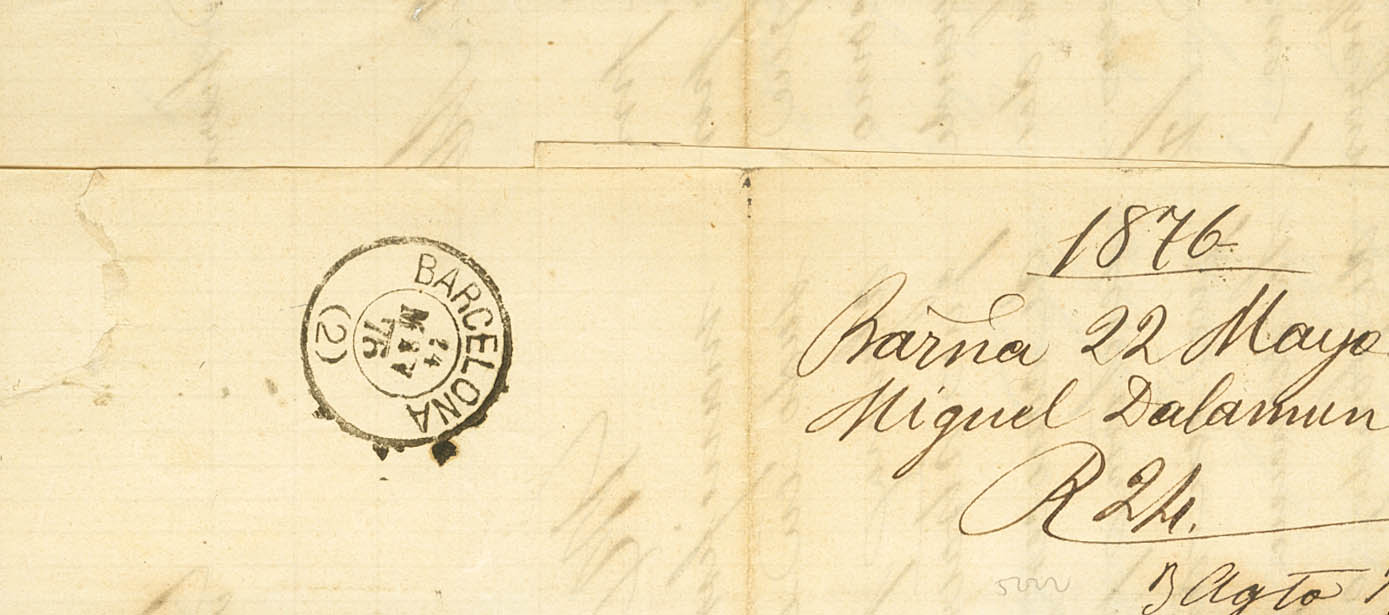 BARCELONA
24
MAY
76
(2)
1876
Barña 22 Mayo
Miguel Dalamun
R 24.
3 Agto